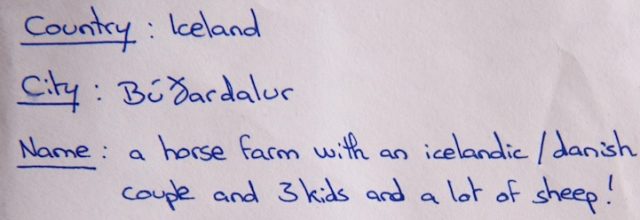 Country : Iceland
City : Búðardalur
Name : a horse farm with an icelandic / danish
couple and 3 kids and a lot of sheep!